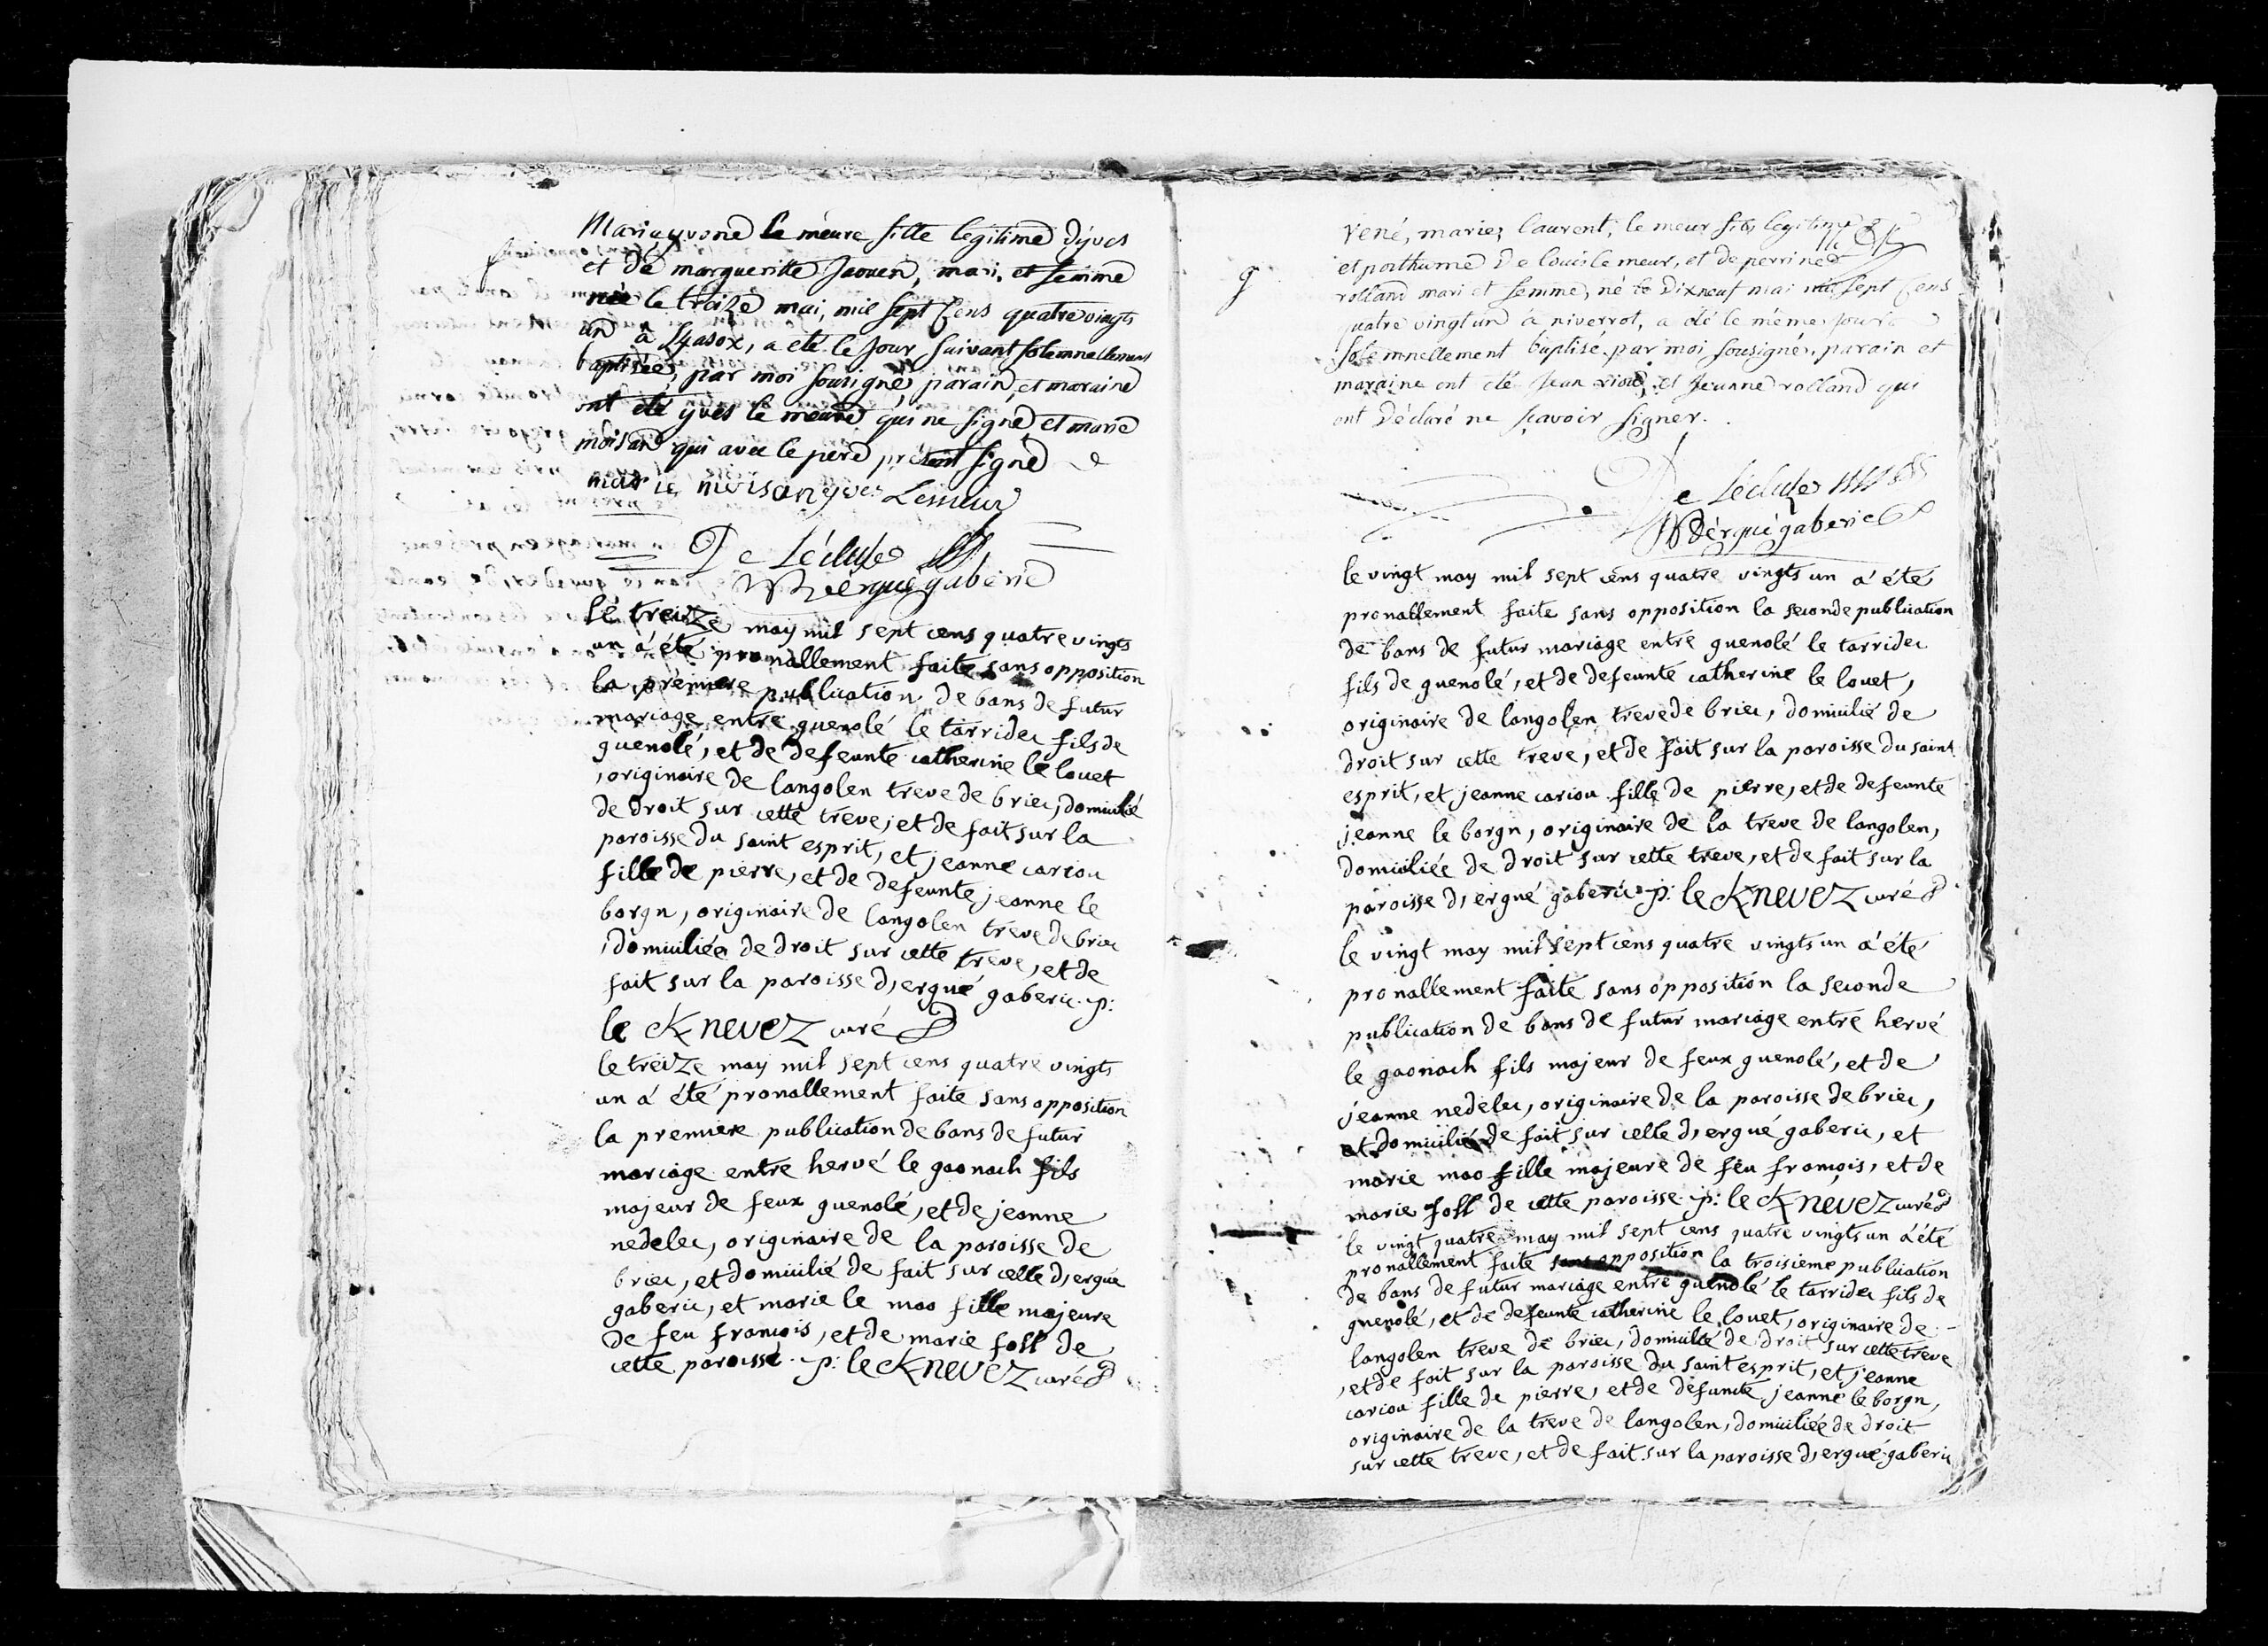 Marie yvone le meure fille legitime d'yves
et de margueritte Jaouen, mari et femme
née le treize mai, mil sept Cens quatre vingts
un à Lyasox, a été le jour suivant solemnellement
baptisée, par moi sousigné, parain, et maraine
ont été yves le meure qui ne signe et marie
moisan qui avec le père présent signe
marie moisan yves Lemeur
De Lécluse
d'ergué gaberic
le treize may mil sept cens quatre vingts
un a été pronallement faite sans opposition
la premiere publication de bans de futur
mariage entre guenolé le tarridec fils de
guenolé, et de defeunte catherine le louet
, originaire de langolen treve de briec, domicilié
de droit sur cette treve, et de fait sur la
paroisse du saint esprit, et jeanne cariou
fille de pierre, et de defeunte jeanne le
borgn, originaire de langolen treve de briec
, domiciliée de droit sur cette treve, et de
fait sur la paroisse d'ergué gaberic. p:
le Knevez curé
le treize may mil sept cens quatre vingts
un a été pronallement faite sans opposition
la premiere publication de bans de futur
mariage entre hervé le gaonach fils
majeur de feux guenolé, et de jeanne
nedelec, originaire de la paroisse de
briec, et domicilié de fait sur celle d'ergué
gaberic, et marie le mao fille majeure
de feu françois, et de marie foll de
cette paroisse. p: le Knevez curé
rené, marie, laurent, le meur fils legitime
et posthume de louis le meur, et de perrine
rolland mari et femme, né le dixneuf mai mil sept Cens
quatre vingt un à niverrot, a été le même jour
solemnellement baptisé par moi sousigné, parain et
maraine ont été jean riou, et jeanne rolland qui
ont déclaré ne sçavoir signer.
De Lécluse
d'ergué gaberic
le vingt may mil sept cens quatre vingts un a été
pronallement faite sans opposition la seconde publication
de bans de futur mariage entre guenolé le tarridec
fils de guenolé, et de defeunte catherine le louet,
originaire de langolen treve de briec, domicilié de
droit sur cette treve, et de fait sur la paroisse du saint
esprit, et jeanne cariou fille de pierre, et de defeunte
jeanne le borgn, originaire de la treve de langolen,
domiciliée de droit sur cette treve, et de fait sur la
paroisse d'ergué gaberic. p: le Knevez curé
le vingt may mil sept cens quatre vingts un a été
pronallement faite sans opposition la seconde
publication de bans de futur mariage entre hervé
le gaonach fils majeur de feux guenolé, et de
jeanne nedelec, originaire de la paroisse de briec,
et domicilié de fait sur celle d'ergué gaberic, et
marie mao fille majeure de feu françois, et de
marie foll de cette paroisse. p: le Knevez curé
le vingt quatre may mil sept cens quatre vingts un a été
pronallement faite sans opposition la troisieme publication
de bans de futur mariage entre guenolé le tarridec fils de
guenolé, et de defeunte catherine le louet, originaire de
langolen treve de briec, domicilié de droit sur cette treve
, et de fait sur la paroisse du saint esprit, et jeanne
cariou fille de pierre, et de defunte jeanne le borgn,
originaire de la treve de langolen, domiciliée de droit
sur cette treve, et de fait sur la paroisse d'ergué gaberic